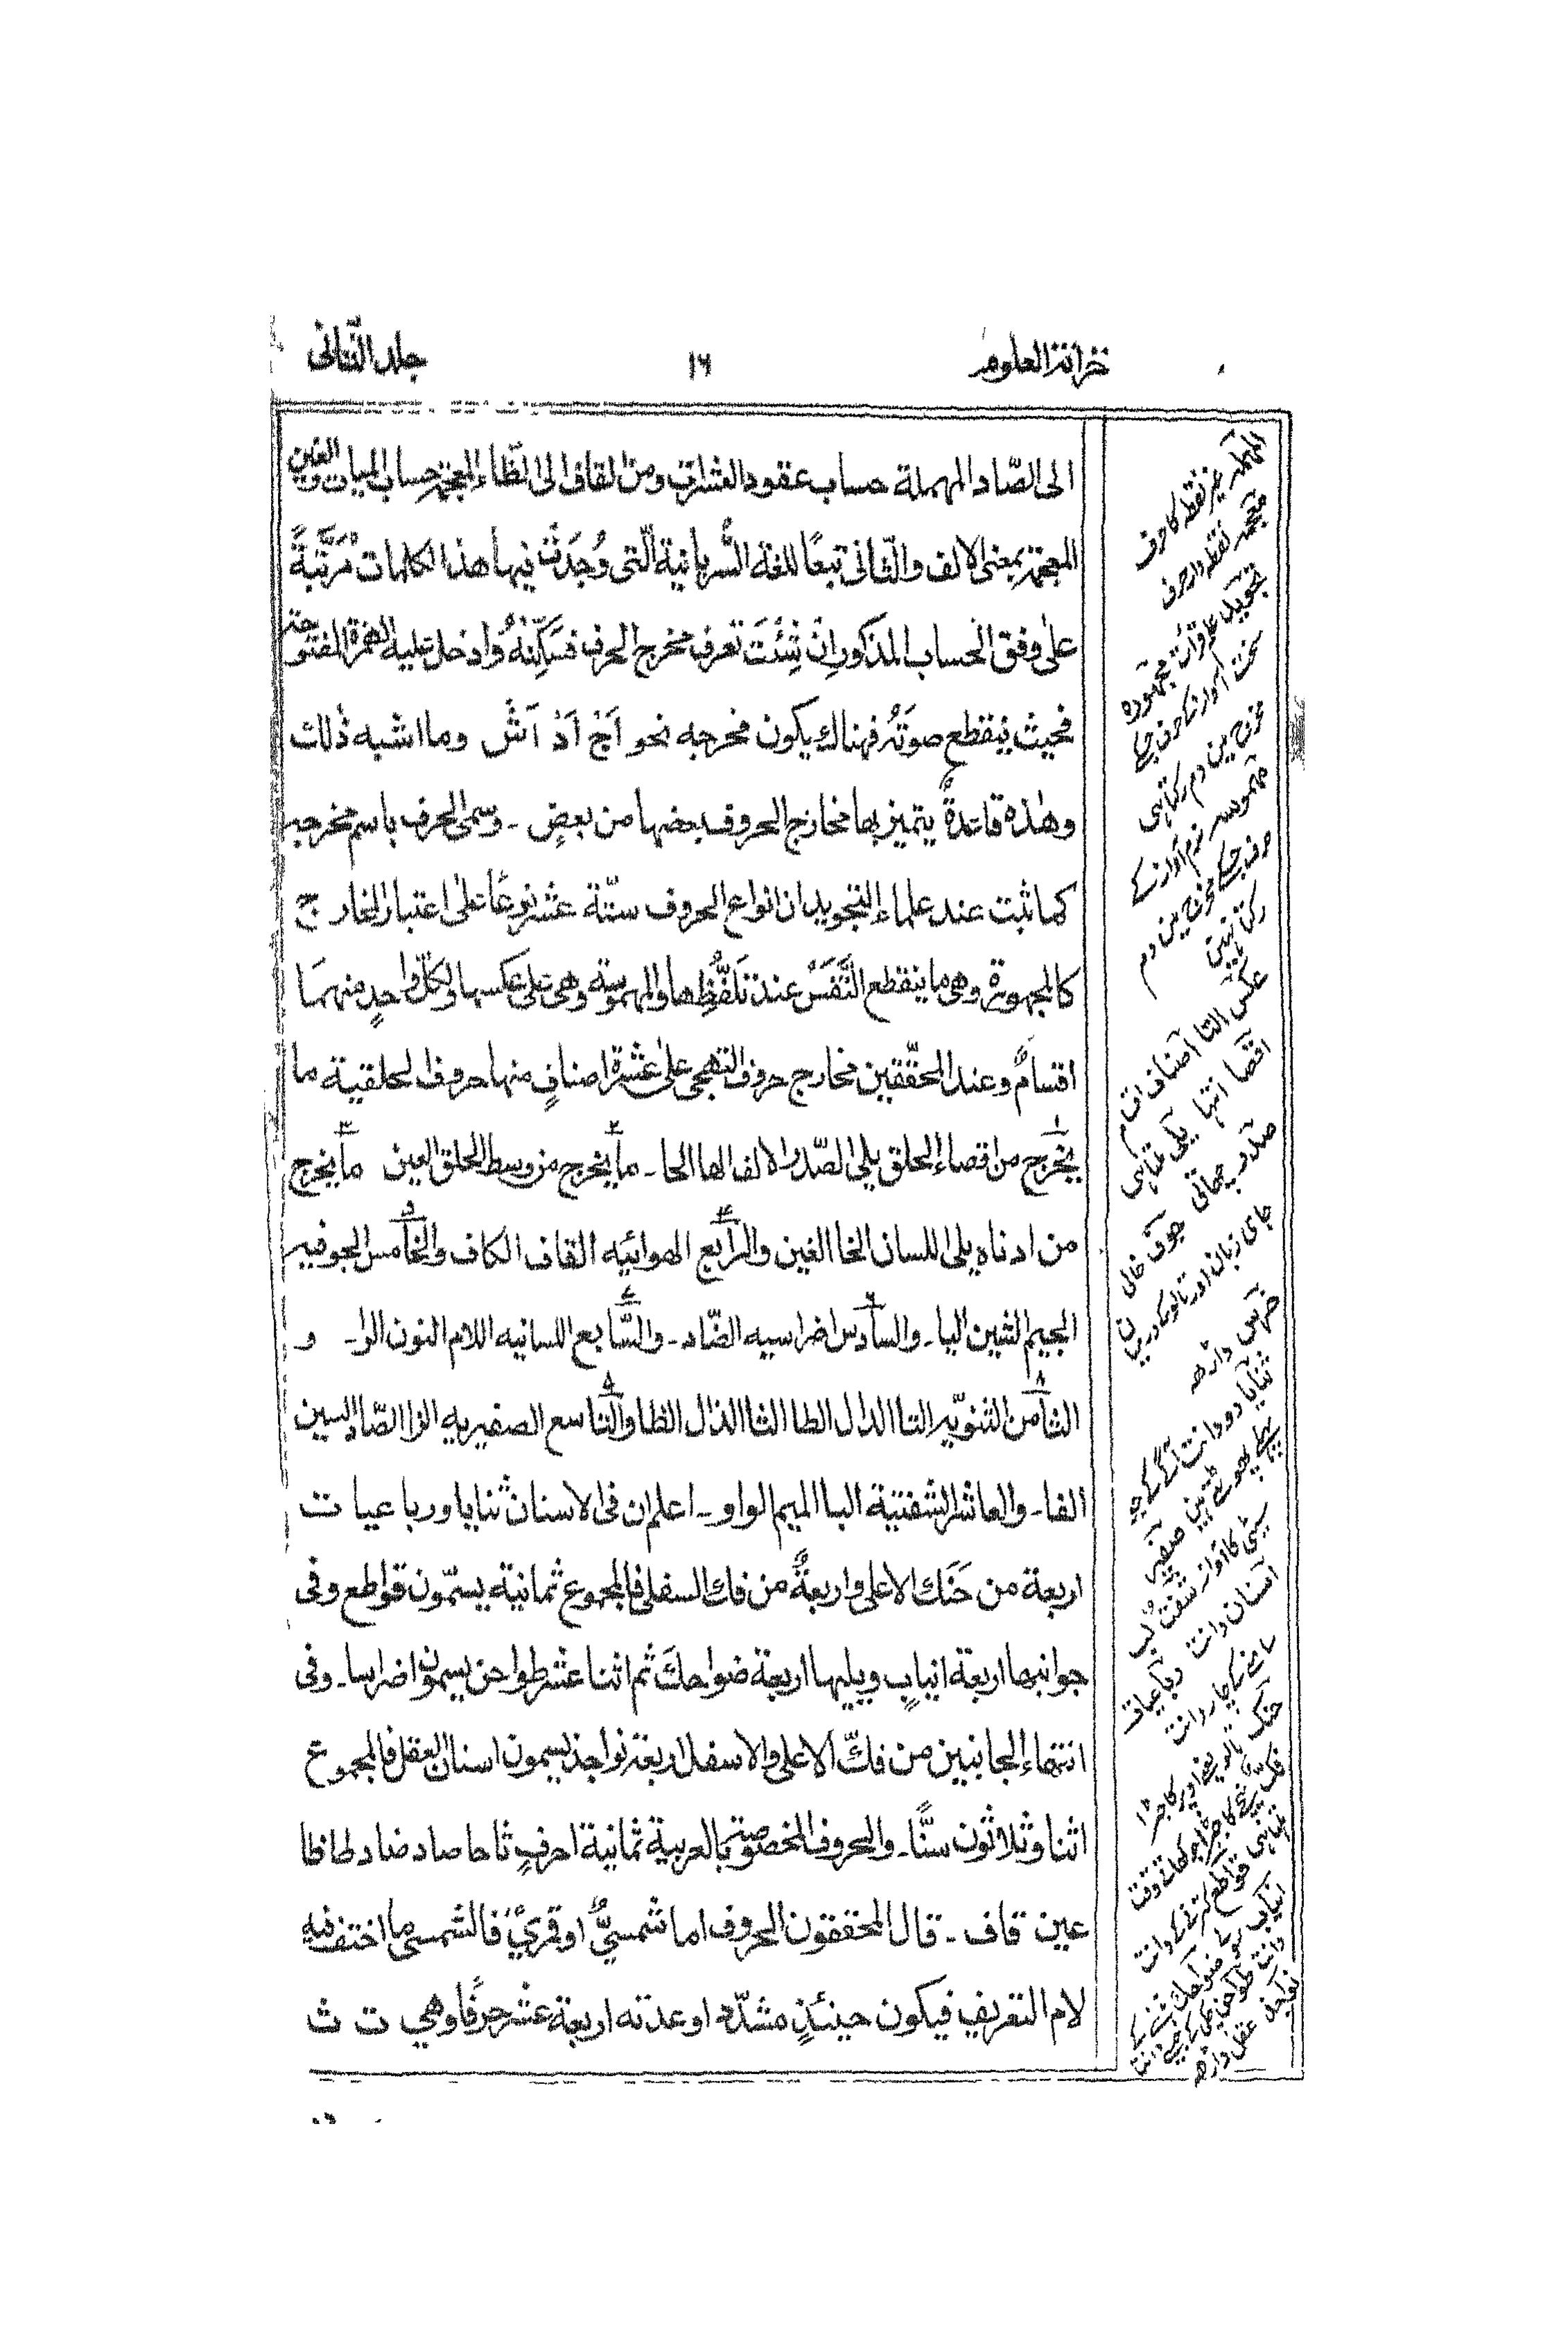 خزانة العلوم
١٦
جلد الثانی
الی الصّاد المهملة حساب عقود العشرات ومن القاف الی الظّاء المعجمة حساب المیات والغین
المعجمة بمعنی الالف والثّانی تبعًا للغة السُّریانیة الّتی وُجَدَتْ فیها هذا الکلمات مُرَتَّبَةً
علی وفق الحساب المذکور اِنْ شِئْتَ تعرف مخرج الحرف فسَکِّنْهُ وادخل علیه الهمزة المفتوحة
فحیث ینقطع صوتَهُ فهناك یکون مخرجه نحو اَجْ اَذْ اَشْ وما اشبه ذٰلك
وهٰذه قاعدةٌ یتمیز بها مخارج الحروف بعضها من بعضٍ ۔ وسمی الحرف باسم مخرجه
کما ثبت عند علماء التجوید ان انواع الحروف ستّة عشر نوعًا علی اعتبار المخارج
کالمجهورة وهی ما ینقطع النَّفَسْ عند تَلَفُّظِها والمهموسة وهی علی عکسها ولکلّ واحدٍ منهمَا
اقسامٌ وعند المحقّقین مخارج حروف التهجی علی عشرة اصنافٍ منها حروف الحلقیة ما
یخرج من اقصاء الحلق یلی الصّدر الالف الها الحا ۔ ما یخرج من وسط الحلق العین ما یخرج
من ادناه یلی اللسان الخا الغین والرابع الهوائیه القاف الکاف والخامس الجوفیه
الجیم الشین الیا ۔ والسادس اضراسیه الضّاد ۔ والسّابع اللسانیه اللام النون الرا ۔ و
الثامن الثنویّه التا الدال الطا الثا الذال الظا والتاسع الصفیریه الزا الصّاد السین
الفا ۔ والعاشر الشفتیة البا المیم الواو ۔ اعلم ان فی الاسنان ثنایا ورباعیات
اربعة من حَنَك الاعلی واربعةٌ من فك السفلی فالمجموع ثمانیة یسمّون قواطع وفی
جوانبها اربعة انیابٍ ویلیها اربعة ضواحكَ ثم اثنا عشر طواحن یسمون اضراسا ۔ وفی
انتهاء الجانبین من فكّ الاعلی والاسفل اربعة نواجذ یسمون اسنان العقل فالمجموع
اثنا وثلاثون سنًّا ۔ والحروف المخصوصة بالعربیة ثمانیة احرفٍ ثا حا صاد ضاد طا ظا
عین قاف ۔ قال المحققون الحروف اما شمسیٌّ او قمریٌ فالشمسی ما اختف فیه
لام التعریف فیکون حینئذٍ مشدّد او عدته اربعة عشر حرفًا وهی ت ث
المهملہ غیر نقطہ کا حرف
معجمہ نقطہ دار حرف
تجوید علم قرات مجہورہ
سخت آواز کے حرف جسکے
مخرج مین دم رکتا ہی
مہموسہ نرم آواز کے
حرف جسکے مخرج مین دم
رکتا نہین
عکس الٹا اصناف اقسام
اقصا انتہا یلی ملتا ہی
صدر چھاتی جوف خالی
جای زبان اور تالو کا درمیان
ضرس داڑھ
ثنایا دو دانت آگے کے جو
پہلے پھوٹتے ہین صفیر
سیٹی کا آواز شفت لب
اسنان دانت رباعیات
سامنے کے چار دانت
حنک تالو یعنی اوپر کا جبڑا